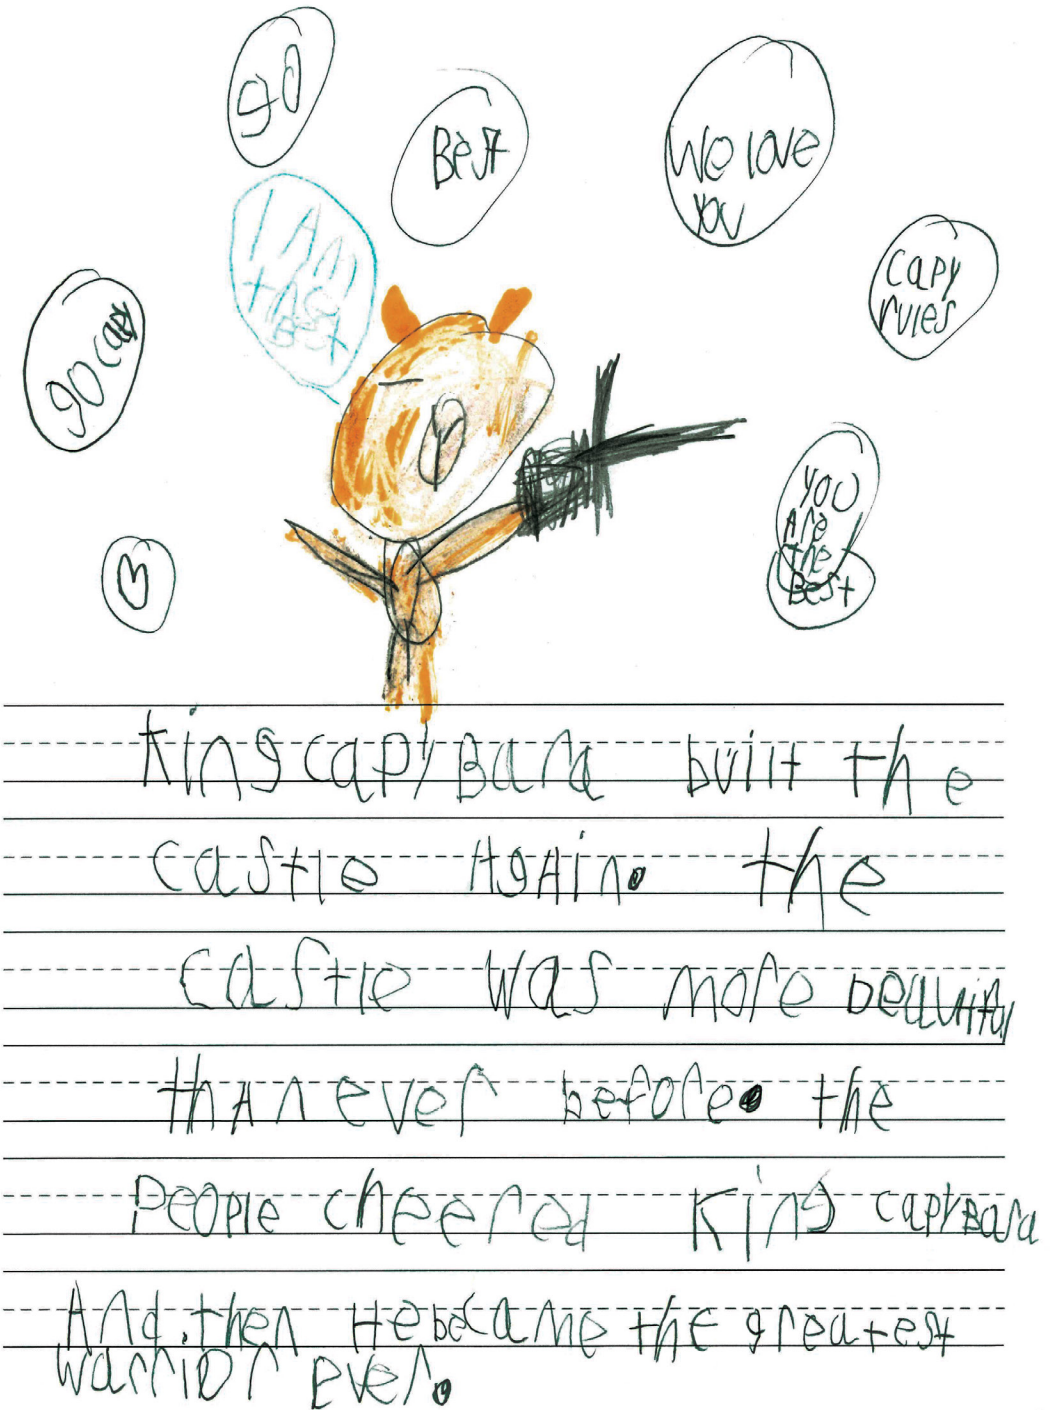 go
Best
We love
you
I AM
the
BEst
capy
rules
go capy
YOU
Are
the
Best
King capyBara built the
castle AgAin. the
castle was more beautiful
thAn ever before. the
People cheered King capyBara
And.then He became the greatest
warrior ever.